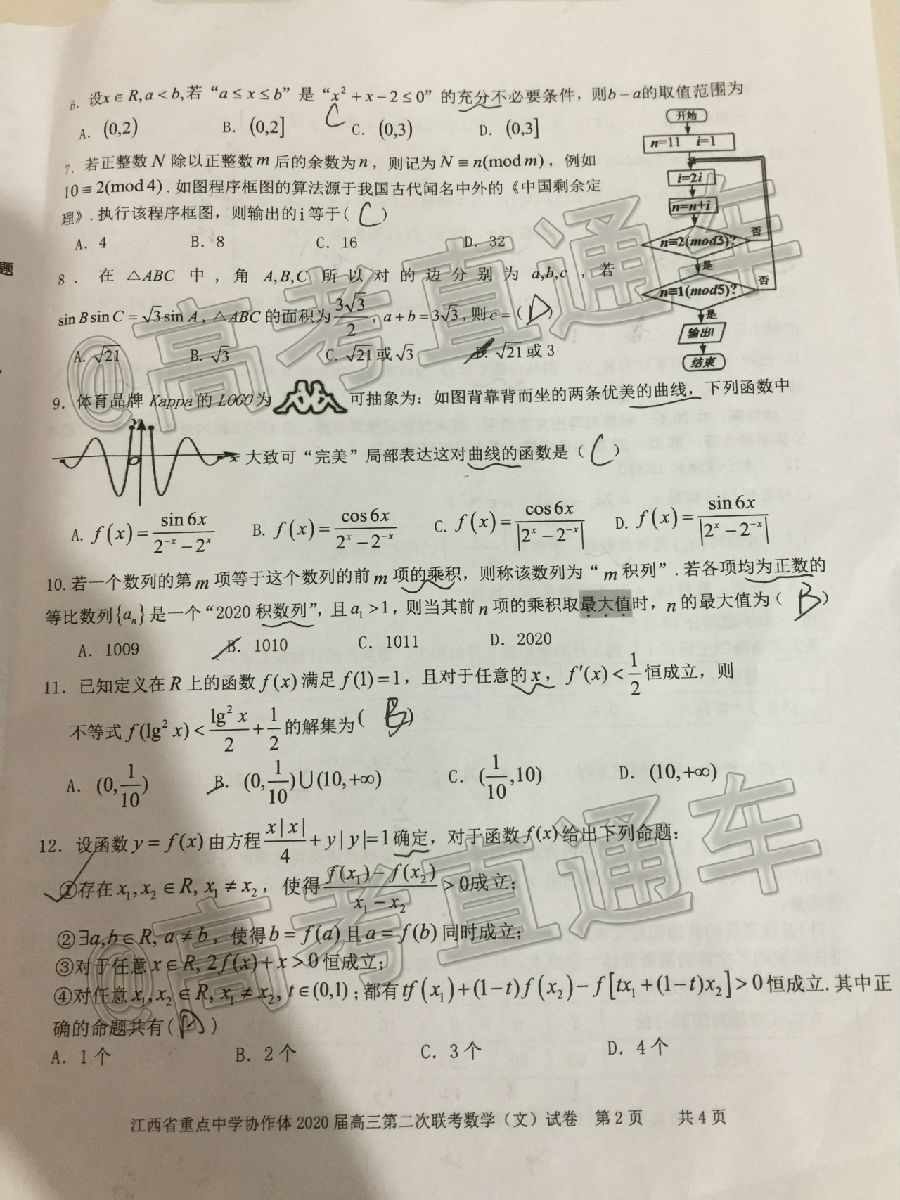 6. 设x∈R,a<b,若“a≤x≤b”是“x²+x-2≤0”的充分不必要条件，则b-a的取值范围为
C
A. (0,2) B. (0,2] C. (0,3) D. (0,3]
7. 若正整数N除以正整数m后的余数为n，则记为N≡n(mod m)，例如
10≡2(mod 4). 如图程序框图的算法源于我国古代闻名中外的《中国剩余定
理》. 执行该程序框图，则输出的i等于( C )
A. 4 B. 8 C. 16 D. 32
开始
n=11 i=1
i=2i
n=n+i
n≡2(mod3)?
否
是
n≡1(mod5)?
否
是
输出i
结束
题
8. 在△ABC中，角A,B,C所以对的边分别为a,b,c，若
sin B sin C=√3 sin A，△ABC的面积为3√3/2，a+b=3√3，则c=( D )
A. √21 B. √3 C. √21或√3 D. √21或3
9. 体育品牌Kappa的LOGO为 可抽象为：如图背靠背而坐的两条优美的曲线，下列函数中
x 大致可“完美”局部表达这对曲线的函数是( C )
A. f(x)=sin6x/(2⁻ˣ-2ˣ) B. f(x)=cos6x/(2ˣ-2⁻ˣ) C. f(x)=cos6x/|2ˣ-2⁻ˣ| D. f(x)=sin6x/|2ˣ-2⁻ˣ|
10. 若一个数列的第m项等于这个数列的前m项的乘积，则称该数列为“m积列”. 若各项均为正数的
等比数列{aₙ}是一个“2020积数列”，且a₁>1，则当其前n项的乘积取最大值时，n的最大值为( B )
A. 1009 B. 1010 C. 1011 D. 2020
11. 已知定义在R上的函数f(x)满足f(1)=1，且对于任意的x，f′(x)<1/2恒成立，则
不等式f(lg²x)<lg²x/2+1/2的解集为( B )
A. (0,1/10) B. (0,1/10)∪(10,+∞) C. (1/10,10) D. (10,+∞)
12. 设函数y=f(x)由方程x|x|/4+y|y|=1确定，对于函数f(x)给出下列命题：
①存在x₁,x₂∈R, x₁≠x₂，使得(f(x₁)-f(x₂))/(x₁-x₂)>0成立；
②∃a,b∈R, a≠b，使得b=f(a)且a=f(b)同时成立；
③对于任意x∈R, 2f(x)+x>0恒成立；
④对任意x₁,x₂∈R, x₁≠x₂, t∈(0,1)；都有tf(x₁)+(1-t)f(x₂)-f[tx₁+(1-t)x₂]>0恒成立. 其中正
确的命题共有( )
A. 1个 B. 2个 C. 3个 D. 4个
江西省重点中学协作体2020届高三第二次联考数学（文）试卷 第2页 共4页
@高考直通车
@高考直通车